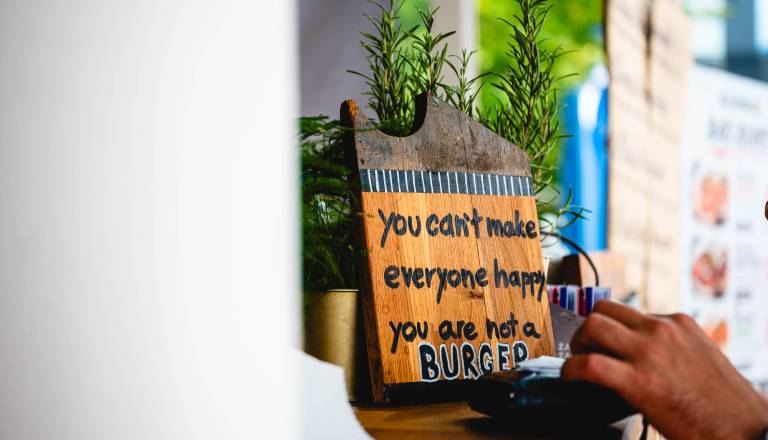 you can't make
everyone happy
you are not a
BURGER